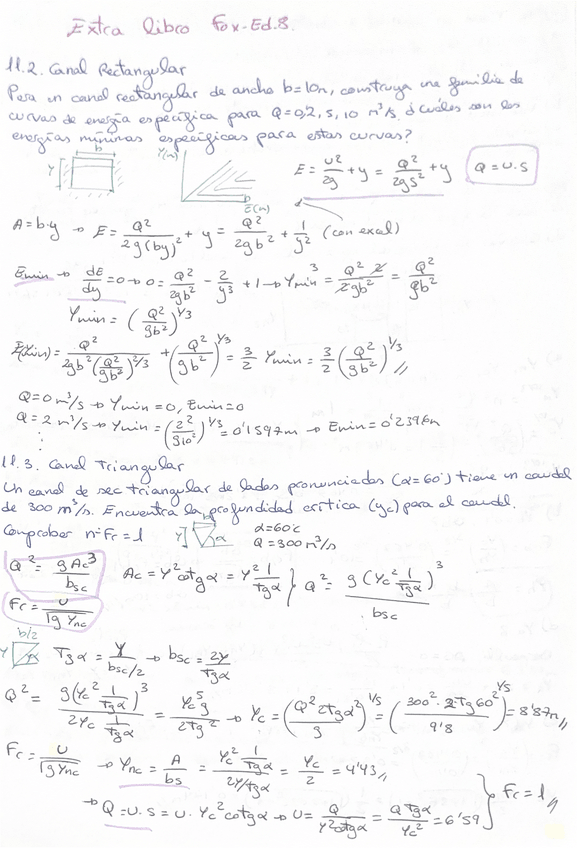 Extra libro Fox-Ed.8.
11.2. Canal Rectangular
Para un canal rectangular de ancho b=10m, construya una familia de
curvas de energía específica para Q=0,2,5,10 m³/s. ¿Cuáles son las
energías mínimas específicas para estas curvas?
b
y
Y(m)
E(m)
E = U²/2g + y = Q²/2gS² + y
Q = U·S
A=b·y → E = Q²/2g(by)² + y = Q²/2gb² + 1/y² (con excel)
Emin → dE/dy = 0 → 0 = Q²/2gb² - 2/y³ + 1 → Ymin³ = Q² 2/2gb² = Q²/gb²
Ymin = (Q²/gb²)^1/3
E(Ymin) = Q²/2gb²(Q²/gb²)^2/3 + (Q²/gb²)^1/3 = 3/2 Ymin = 3/2 (Q²/gb²)^1/3 //
Q=0 m³/s → Ymin=0, Emin=0
Q=2 m³/s → Ymin = (2²/g10²)^1/3 = 0'1597m → Emin=0'2396m
⋮
11.3. Canal Triangular
Un canal de sec triangular de lados pronunciados (α=60°) tiene un caudal
de 300 m³/s. Encuentra la profundidad crítica (yc) para el caudal.
Comprobar nº Fr = 1
Y
α
α=60°
Q=300m³/s
Q² = g Ac³/bsc
Ac = Y² cotg α = Y² 1/Tgα } Q² = g(Yc² 1/Tgα)³/bsc
Fr = U/√g Ync
b/2
Y
α
Tgα = Y/bsc/2 → bsc = 2Y/Tgα
Q² = g(Yc² 1/Tgα)³/2Yc 1/Tgα = Yc⁵g/2Tg² → Yc = (Q² 2Tgα²/g)^1/5 = (300²·2·Tg60²/9'8)^1/5 = 8'87m //
Fr = U/√g Ync → Ync = A/bs = Yc² 1/Tgα/2Y/Tgα = Yc/2 = 4'43 //
→ Q=U·S = U·Yc² cotgα → U = Q/Y² cotgα = Q Tgα/Yc² = 6'59 } Fr = 1 //